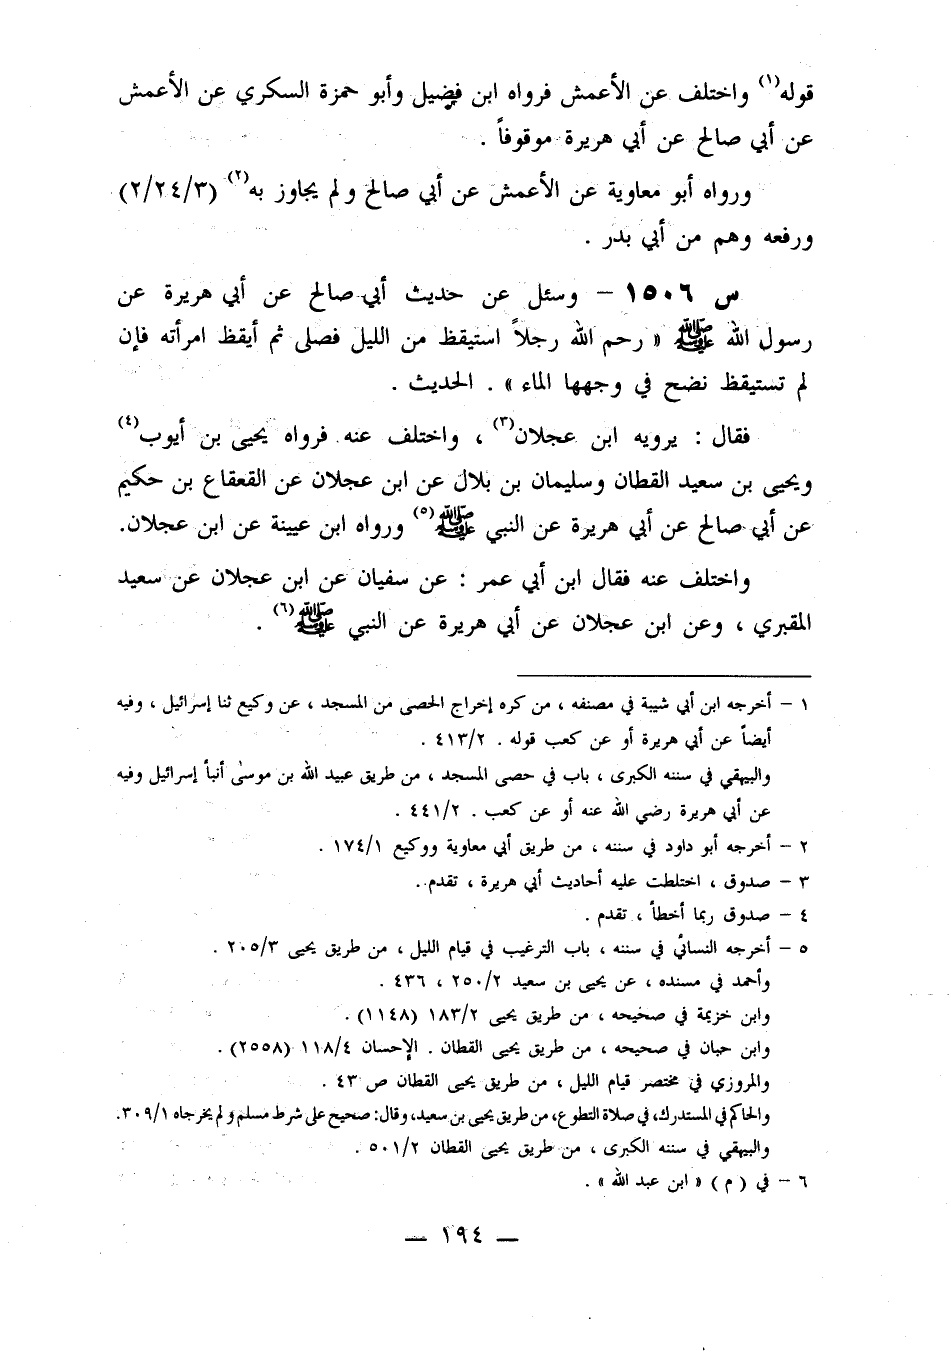 قوله(١) واختلف عن الأعمش فرواه ابن فضيل وأبو حمزة السكري عن الأعمش
عن أبي صالح عن أبي هريرة موقوفاً .
ورواه أبو معاوية عن الأعمش عن أبي صالح ولم يجاوز به(٢) (٢/٢٤/٣)
ورفعه وهم من أبي بدر .
س ١٥٠٦ – وسئل عن حديث أبي صالح عن أبي هريرة عن
رسول الله ﷺ « رحم الله رجلاً استيقظ من الليل فصلى ثم أيقظ امرأته فإن
لم تستيقظ نضح في وجهها الماء » . الحديث .
فقال : يرويه ابن عجلان(٣) ، واختلف عنه فرواه يحيى بن أيوب(٤)
ويحيى بن سعيد القطان وسليمان بن بلال عن ابن عجلان عن القعقاع بن حكيم
عن أبي صالح عن أبي هريرة عن النبي ﷺ(٥) ورواه ابن عيينة عن ابن عجلان.
واختلف عنه فقال ابن أبي عمر : عن سفيان عن ابن عجلان عن سعيد
المقبري ، وعن ابن عجلان عن أبي هريرة عن النبي ﷺ(٦) .
١ – أخرجه ابن أبي شيبة في مصنفه ، من كره إخراج الحصى من المسجد ، عن وكيع ثنا إسرائيل ، وفيه
أيضاً عن أبي هريرة أو عن كعب قوله . ٤١٣/٢ .
والبيهقي في سننه الكبرى ، باب في حصى المسجد ، من طريق عبيد الله بن موسىٰ أنبأ إسرائيل وفيه
عن أبي هريرة رضي الله عنه أو عن كعب . ٤٤١/٢ .
٢ – أخرجه أبو داود في سننه ، من طريق أبي معاوية ووكيع ١٧٤/١ .
٣ – صدوق ، اختلطت عليه أحاديث أبي هريرة ، تقدم .
٤ – صدوق ربما أخطأ ، تقدم .
٥ – أخرجه النسائي في سننه ، باب الترغيب في قيام الليل ، من طريق يحيى ٢٠٥/٣ .
وأحمد في مسنده ، عن يحيى بن سعيد ٢٥٠/٢ ، ٤٣٦ .
وابن خزيمة في صحيحه ، من طريق يحيى ١٨٣/٢ (١١٤٨) .
وابن حبان في صحيحه ، من طريق يحيى القطان . الإحسان ١١٨/٤ (٢٥٥٨) .
والمروزي في مختصر قيام الليل ، من طريق يحيى القطان ص ٤٣ .
والحاكم في المستدرك، في صلاة التطوع، من طريق يحيى بن سعيد، وقال: صحيح على شرط مسلم ولم يخرجاه ٣٠٩/١.
والبيهقي في سننه الكبرى ، من طريق يحيى القطان ٥٠١/٢ .
٦ – في ( م ) « ابن عبد الله » .
— ١٩٤ —